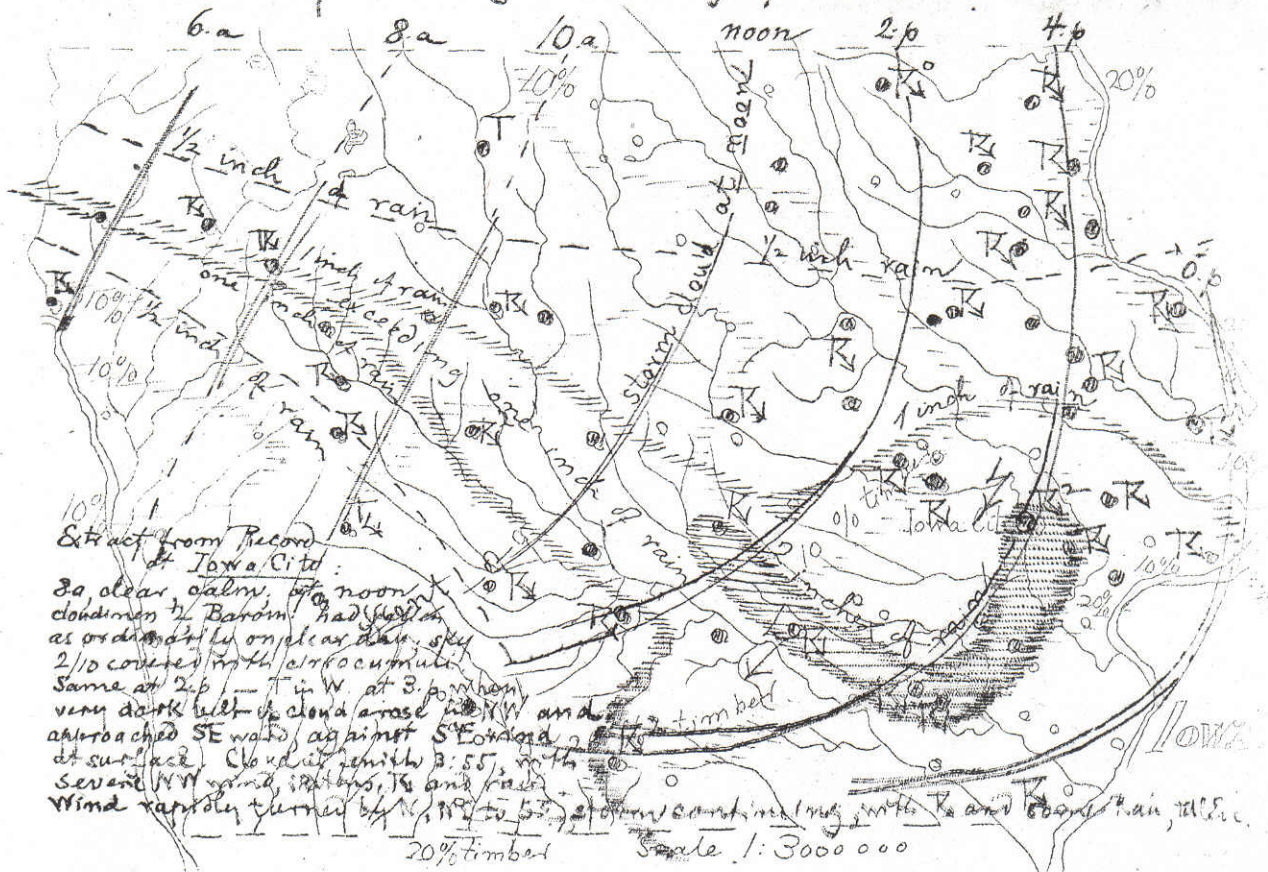 6.a 8.a 10.a noon 2.p 4.p
20% 20%
1/2 inch of rain
storm cloud at noon
1/2 inch rain
6 p
1 inch of rain
one inch of rain
exceeding one inch of rain
10% 1/2 inch of rain
10%
10%
1 inch of rain
timber
Iowa City
inches of rain
10%
20%
timber
Iowa
Extract from Record
at Iowa City:
8a, clear, calm, by noon
cloudiness 2 Barom. had fallen
as ordinarily on clear day, sky
2/10 covered with cirrocumuli.
Same at 2.p. — T in W. at 3.p, when
very dark belt of cloud arose in NW and
approached SE ward, against SE wind
at surface. Cloud in zenith 3:55, with
severe NW wind, and
Wind rapidly turned by N, NE to storm continuing, with and
20% timber Scale 1:3000000